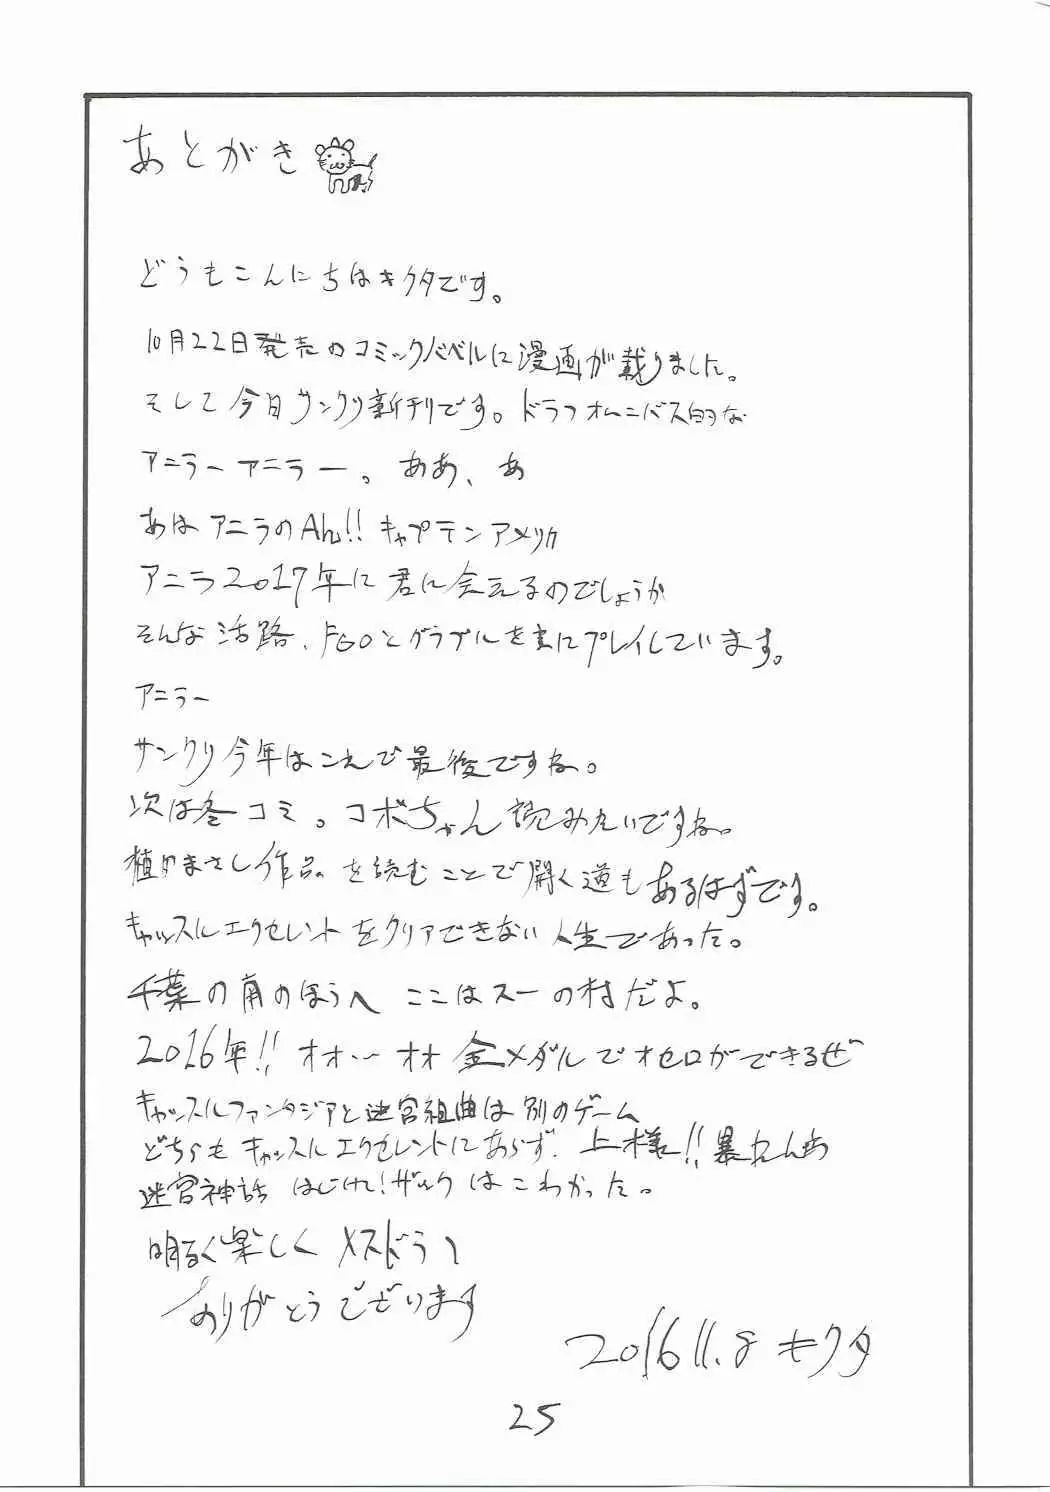 あとがき
どうもこんにちはキクタです。
10月22日発売のコミックバベルに漫画が載りました。
そして今日サンクリ新刊です。ドラフオムニバス的な
アニラーアニラー。ああ、あ
あはアニラのAh!!キャプテンアメリカ
アニラ2017年に君に会えるのでしょうか
そんな活路、FGOとグラブルを主にプレイしています。
アニラー
サンクリ今年はこれで最後ですね。
次は冬コミ。コボちゃん読みたいですね。
植田まさし作品を続むことで開く道もあるはずです。
キャッスルエクセレントをクリアできない人生であった。
千葉の南のほうへ ここはスーの村だよ。
2016年!!オオ…オオ 金メダルでオセロができるぜ
キャッスルファンタジアと迷宮組曲は別のゲーム
どちらもキャッスルエクセレントにあらず。上様!!暴れんあ
迷宮神話 はじけ!ザックはこわかった。
明るく楽しくメスドラへ
ありがとうございます
2016 11.8 キクタ
25